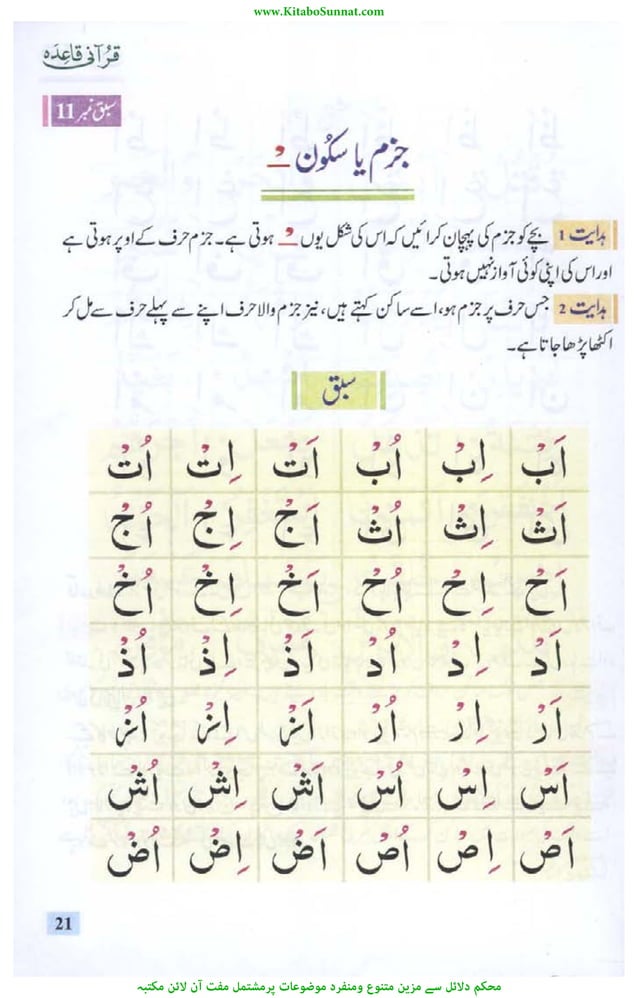 www.KitaboSunnat.com
قرآنی قاعدہ
سبق نمبر 11
جزم یا سکُون ـْ
ہدایت 1 بچے کو جزم کی پہچان کرائیں کہ اس کی شکل یوں ـْ ہوتی ہے۔ جزم حرف کے اوپر ہوتی ہے
اور اس کی اپنی کوئی آواز نہیں ہوتی۔
ہدایت 2 جس حرف پر جزم ہو، اسے ساکن کہتے ہیں، نیز جزم والا حرف اپنے سے پہلے حرف سے مل کر
اکٹھا پڑھا جاتا ہے۔
سبق
اَبْ اِبْ اُبْ اَتْ اِتْ اُتْ
اَثْ اِثْ اُثْ اَجْ اِجْ اُجْ
اَحْ اِحْ اُحْ اَخْ اِخْ اُخْ
اَدْ اِدْ اُدْ اَذْ اِذْ اُذْ
اَرْ اِرْ اُرْ اَزْ اِزْ اُزْ
اَسْ اِسْ اُسْ اَشْ اِشْ اُشْ
اَصْ اِصْ اُصْ اَضْ اِضْ اُضْ
21
محکم دلائل سے مزین متنوع ومنفرد موضوعات پرمشتمل مفت آن لائن مکتبہ